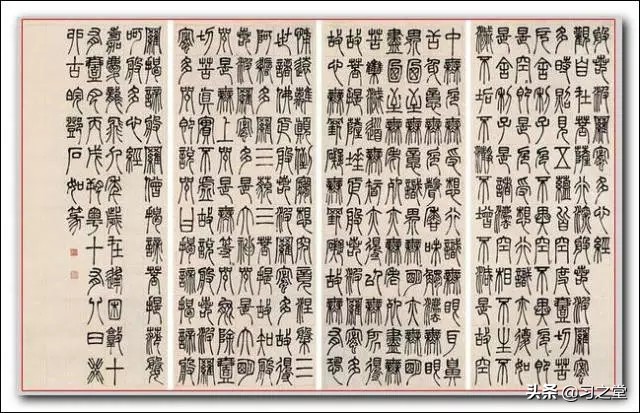 般若波羅蜜多心經
觀自在菩薩行深般若波羅蜜
多時照見五蘊皆空度壹切苦
厄舍利子色不異空空不異色色即
是空空即是色受想行識亦復如
是舍利子是諸法空相不生不
滅不垢不淨不增不減是故空
中無色無受想行識無眼耳鼻
舌身意無色聲香味觸法無眼
界乃至無意識界無無明亦無無明
盡乃至無老死亦無老死盡無
苦集滅道無智亦無得以無所得
故菩提薩埵依般若波羅蜜多
故心無罣礙無罣礙故無有恐
怖遠離顛倒夢想究竟涅槃三
世諸佛依般若波羅蜜多故得
阿耨多羅三藐三菩提故知般
若波羅蜜多是大神咒是大明
咒是無上咒是無等等咒能除壹
切苦真實不虛故說般若波羅
蜜多咒即說咒曰揭諦揭諦般
羅揭諦般羅僧揭諦菩提薩婆
訶般若多心經
嘉慶龍飛九年歲在閼逢困敦十
有壹月丙戌朔粵十有八日癸
卯古皖鄧石如篆
头条 @习之堂